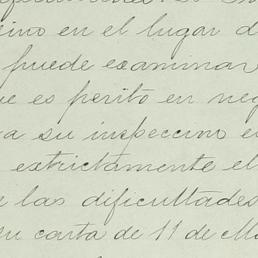 cino en el lugar d
puede examinar
ue es perito en neg
a su inspeccion e
extrictamente el
e las dificultades
su carta de 11 de Ma